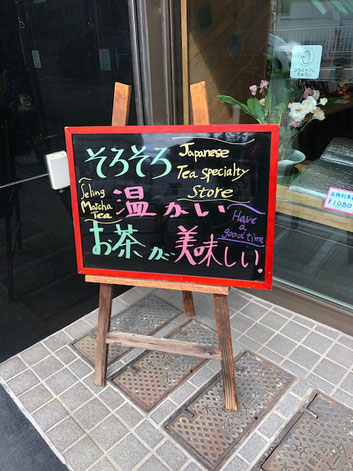 そろそろ
Japanese
Tea specialty
Store
Seling
Matcha
Tea
温かい
Have
a
good time
お茶が美味しい!
¥1,080